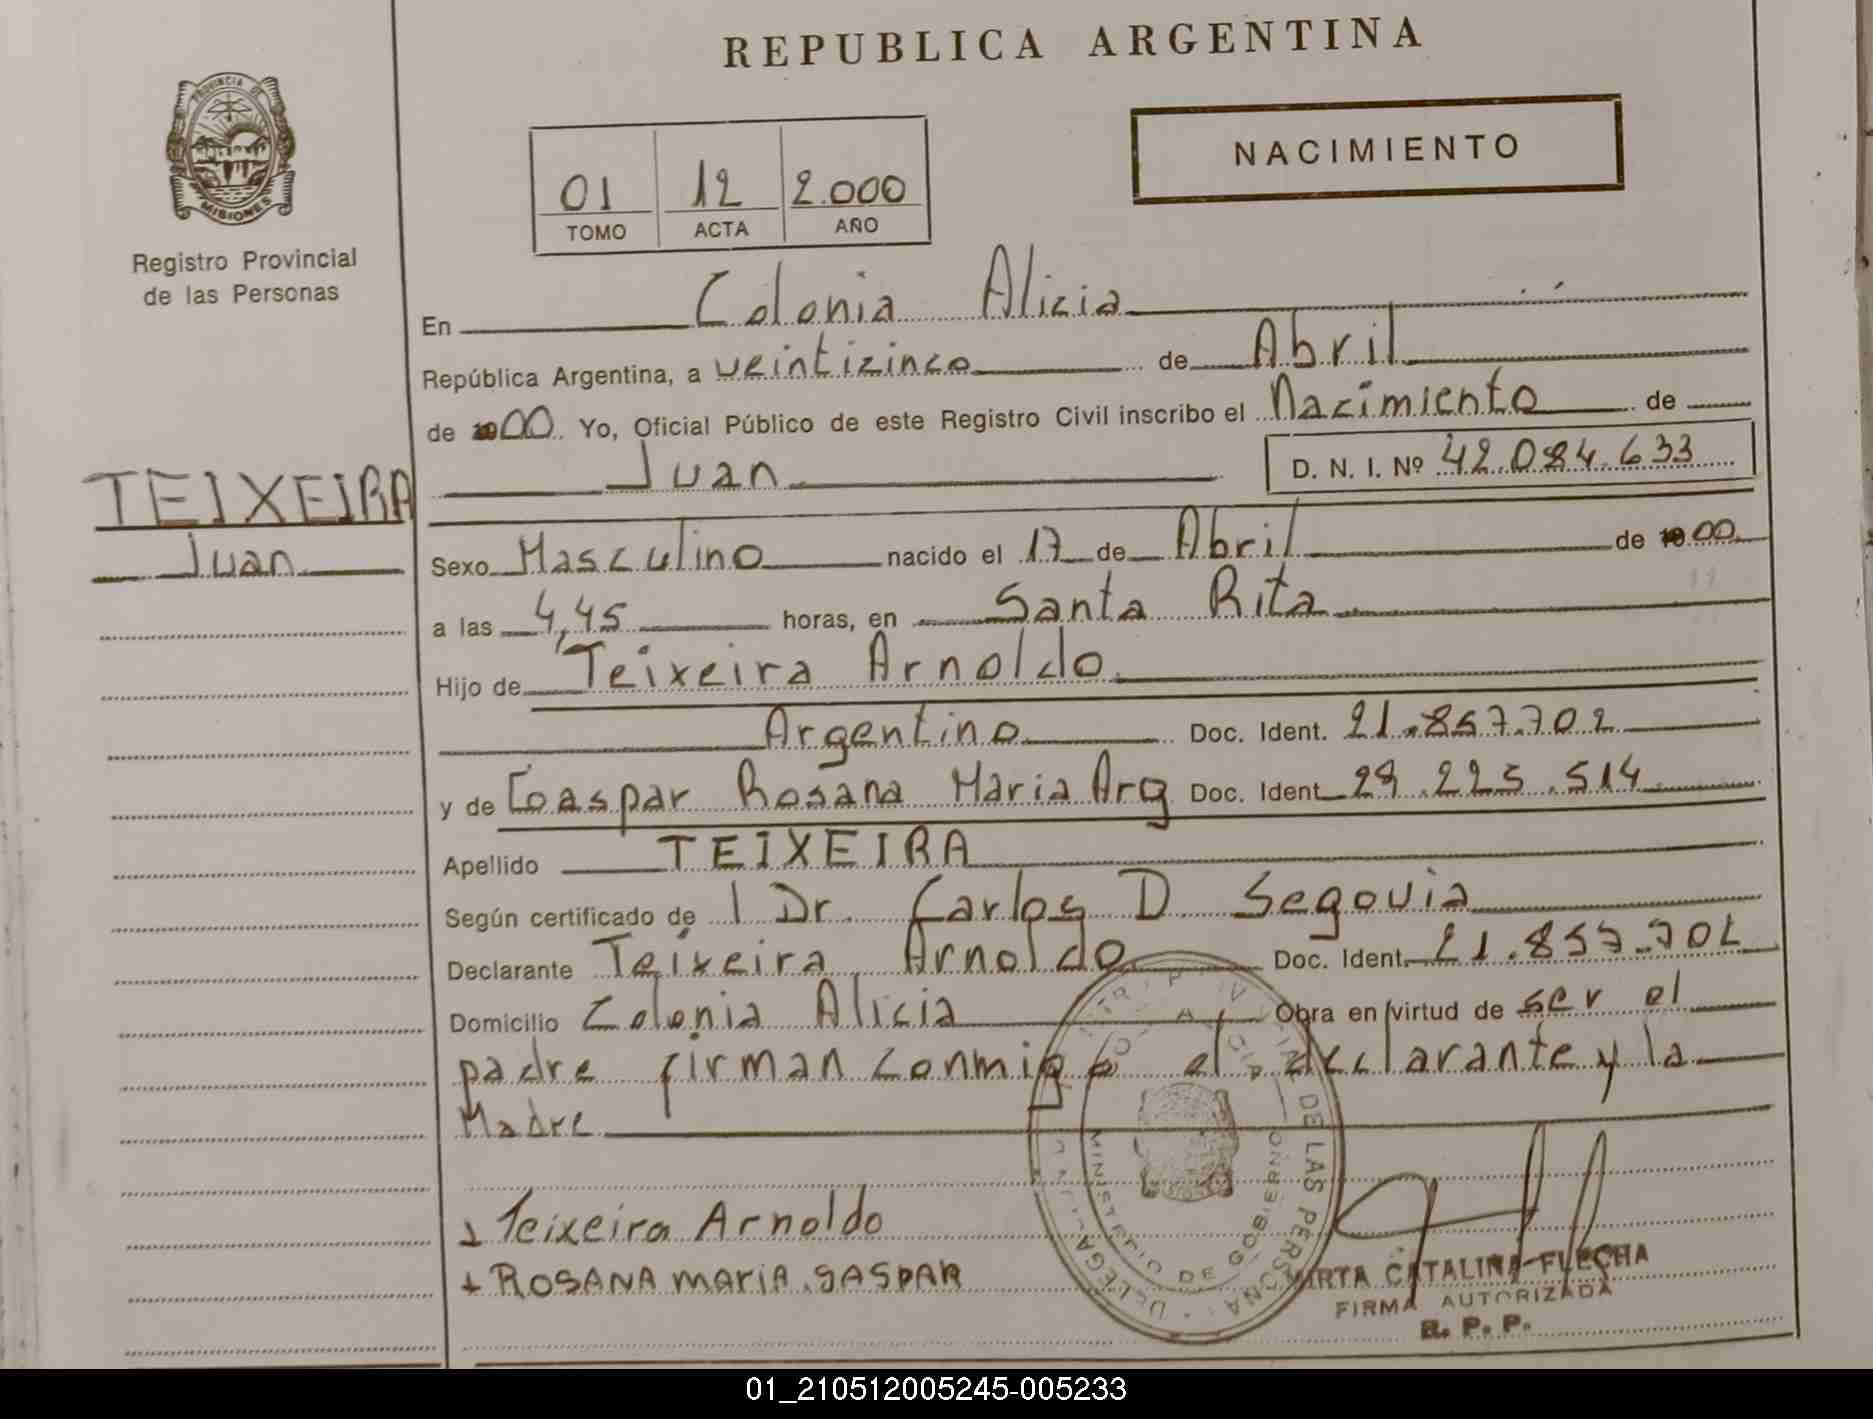 REPUBLICA ARGENTINA
PROVINCIA DE
MISIONES
Registro Provincial
de las Personas
NACIMIENTO
01 12 2.000
TOMO ACTA AÑO
En Colonia Alicia
República Argentina, a veinticinco de Abril
de 00 Yo, Oficial Público de este Registro Civil inscribo el Nacimiento de
Juan D. N. I. Nº 42.084.633
TEIXEIRA
Juan
Sexo Masculino nacido el 17 de Abril de 00
a las 4,45 horas, en Santa Rita
Hijo de Teixeira Arnoldo
Argentino Doc. Ident. 21.857.702
y de Gaspar Rosana Maria Arg Doc. Ident 29.225.514
Apellido TEIXEIRA
Según certificado de Dr. Carlos D Segovia
Declarante Teixeira Arnoldo Doc. Ident. 21.857.702
Domicilio Colonia Alicia Obra en virtud de ser el
padre firman conmigo el declarante y la
Madre
Teixeira Arnoldo
ROSANA MARIA GASPAR
DE LAS PERSONAS
MINISTERIO DE GOBIERNO
MIRTA CATALINA FLECHA
FIRMA AUTORIZADA
R. P. P.
01_210512005245-005233